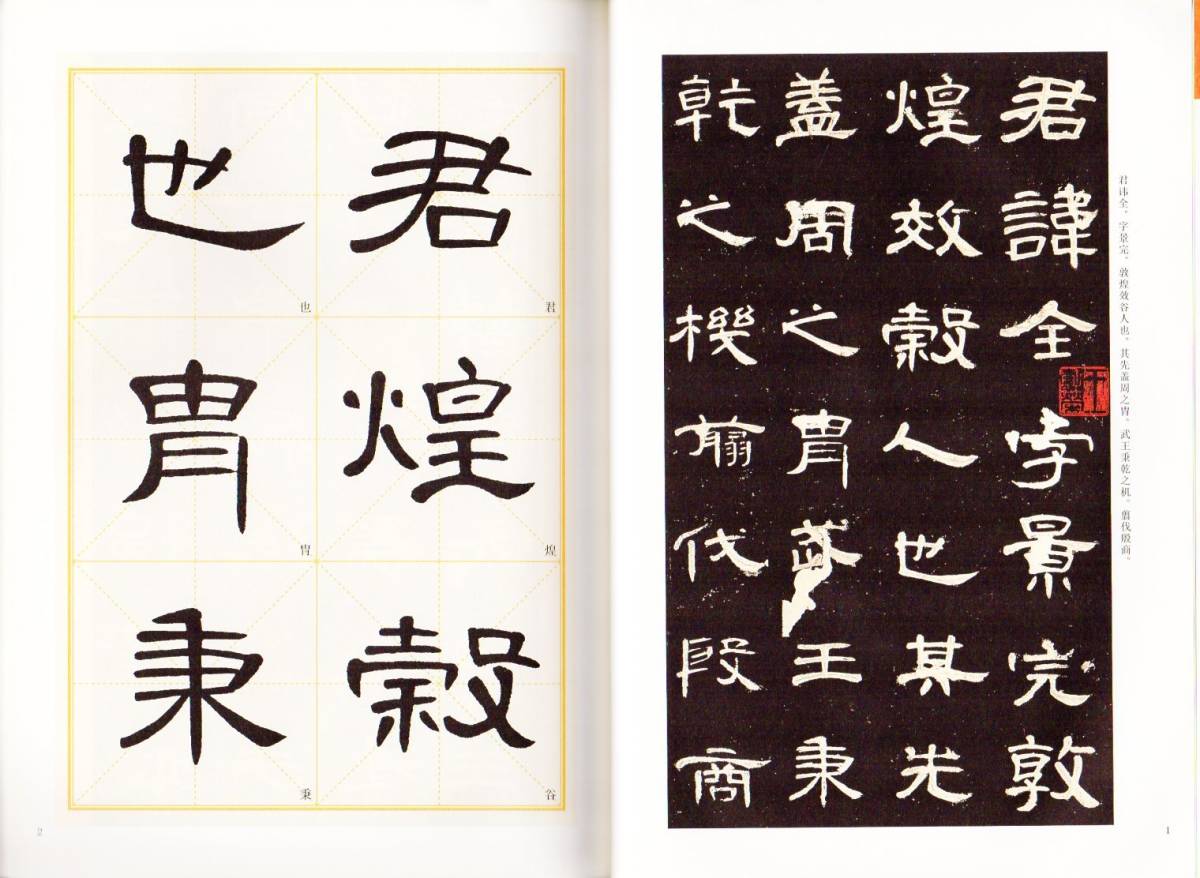 君讳全，字景完，敦煌效谷人也。其先盖周之胄，武王秉乾之机，翦伐殷商。
君諱全字景完敦
煌效穀人也其先
蓋周之胄武王秉
乾之機翦伐殷商
1
君
君
煌
煌
穀
谷
也
也
胄
胄
秉
秉
2